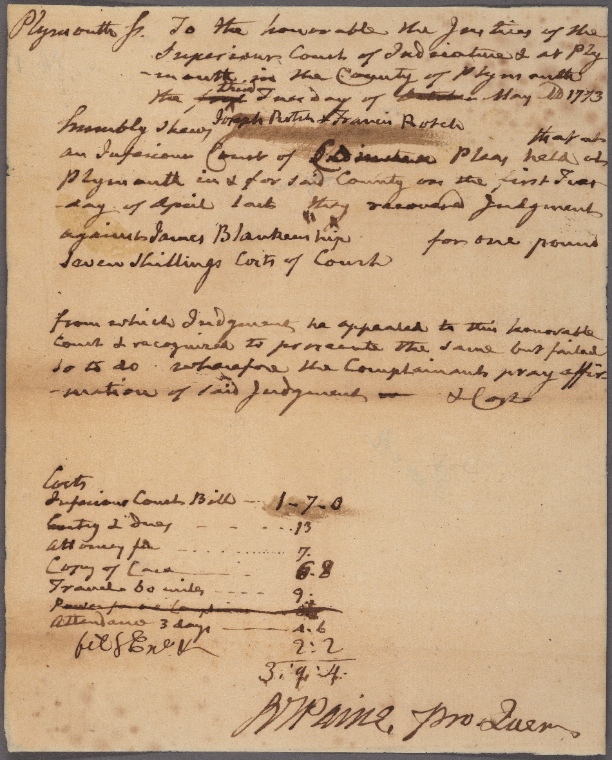 Plymouth Ss. To the honorable the Justices of the
Superiour Court of Judicature & at Ply
-mouth in the County of Plymouth
the third Tuesday of May AD 1773
humbly shews Joseph Rotch & Francis Rotch
that at
an Inferiour Court of Common Pleas held at
Plymouth in & for said County on the first Tues
-day of April last they recovered Judgment
against James Blankenship for one pound
Seven Shillings Costs of Court
from which Judgment he appealed to this honorable
Court & recognized to prosecute the same but failed
so to do wherefore the Complainants pray affir
-mation of said Judgment & Costs
Costs
Inferiour Courts Bill -- 1-7-0
Entry & Dues 13
Attorney fee 7.
Copy of Case 6.8
Travel 60 miles 9:
Attendance 3 days 4.6
2:2
3:9:4.
RTPaine, pro Quer